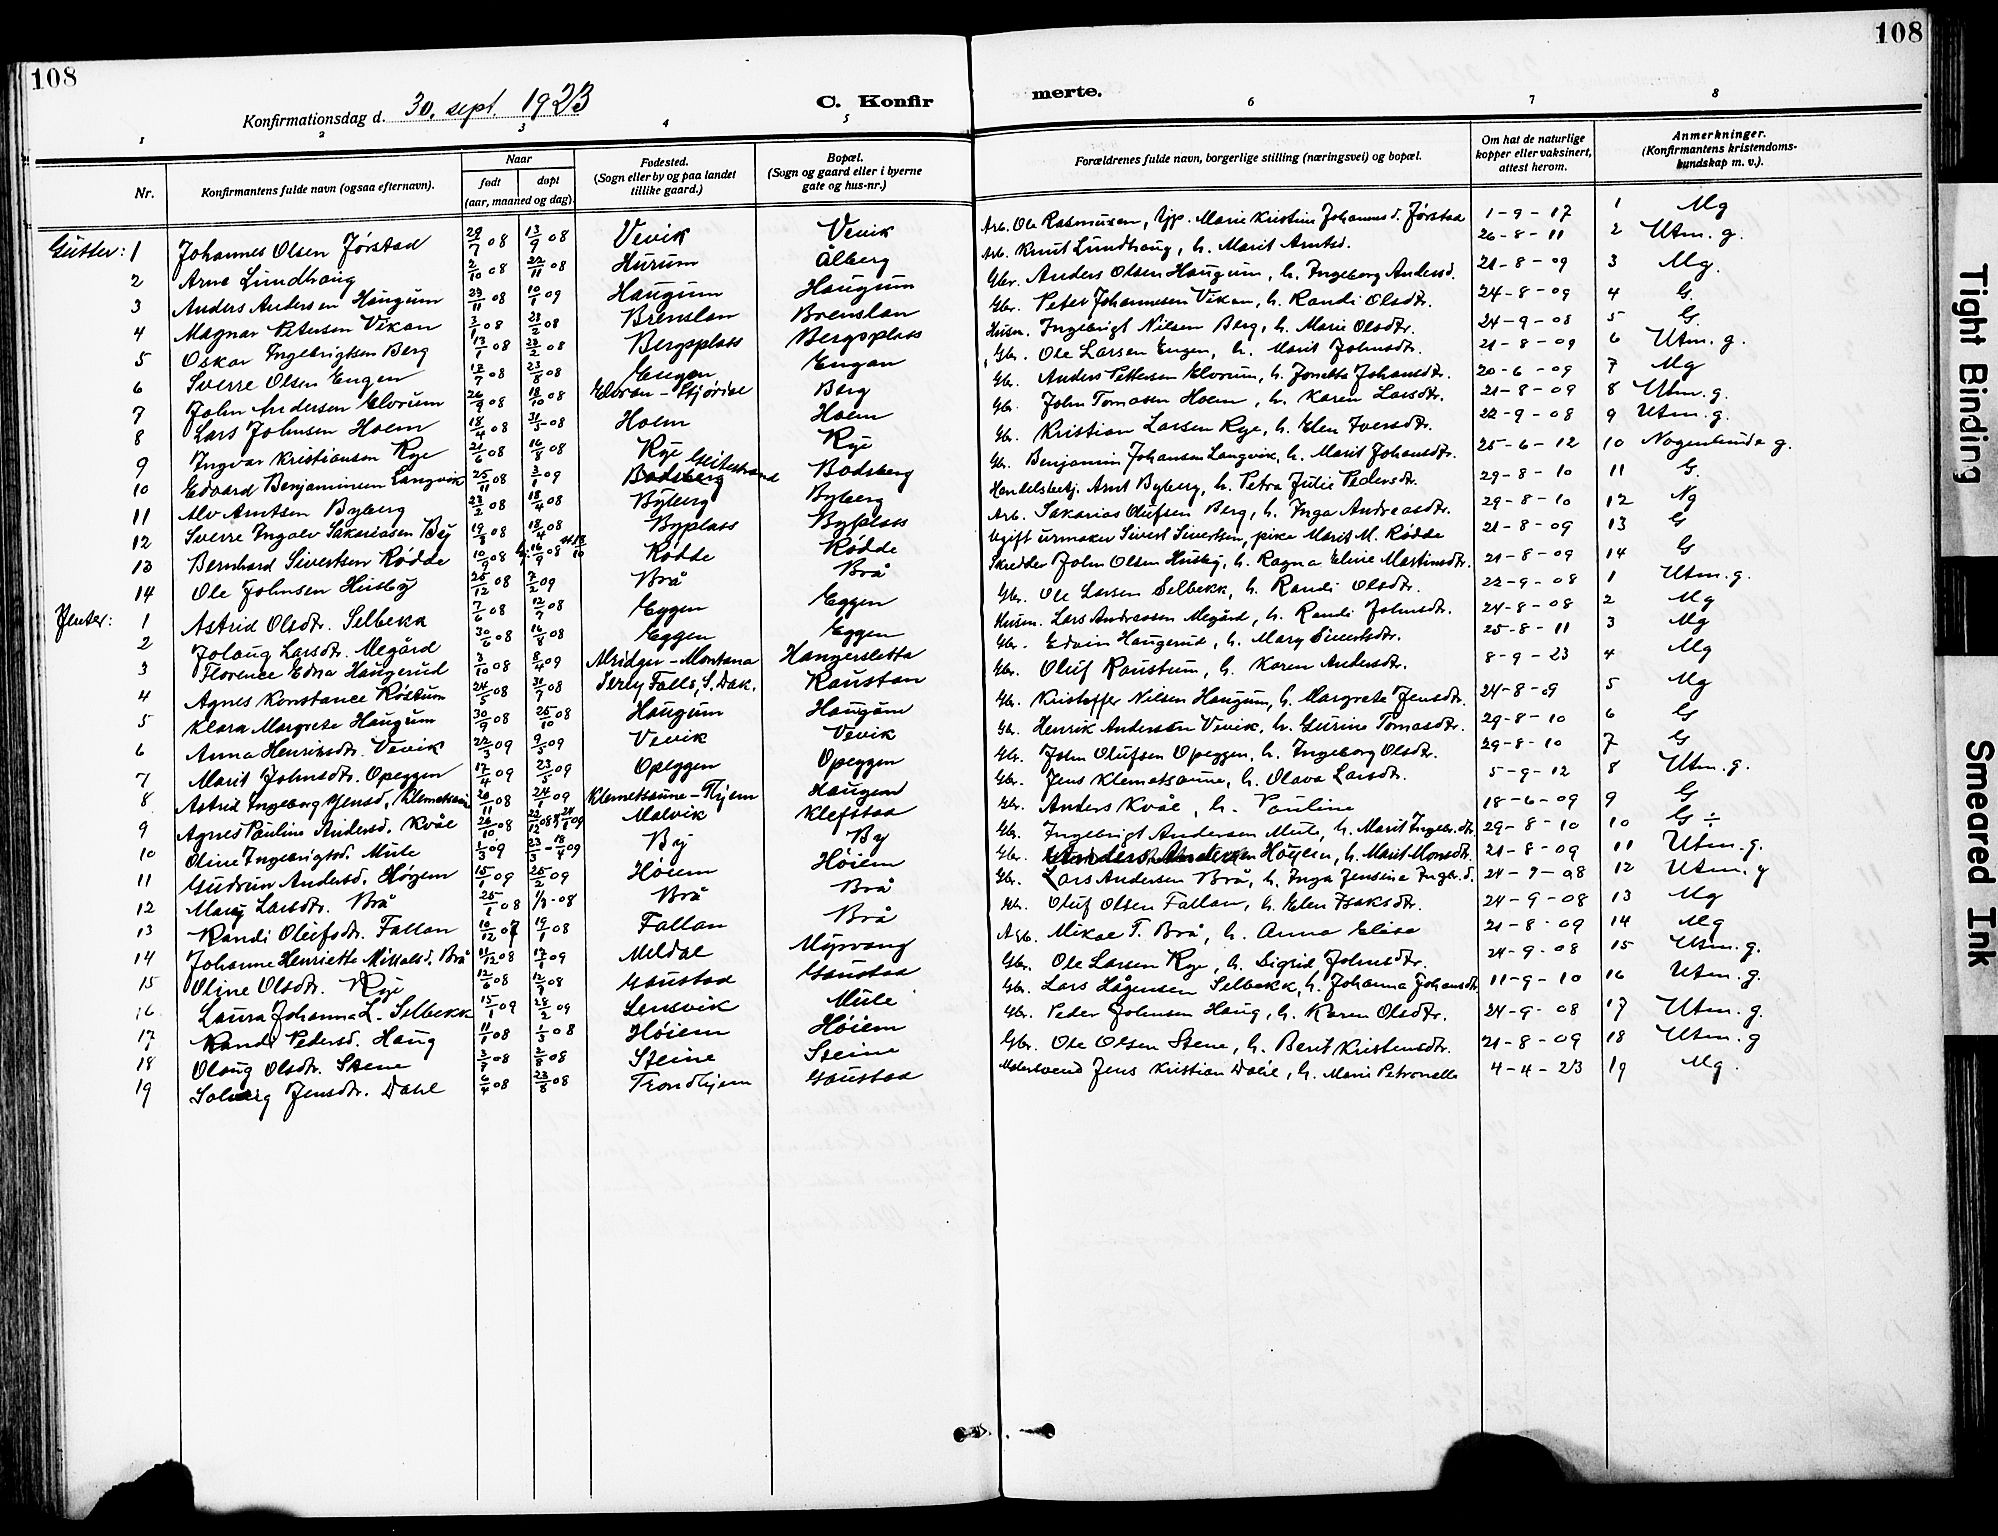 108
108
Konfirmationsdag d. 30. sept. 1923
C. Konfirmerte.
1 2 3 4 5 6 7 8
Nr. Konfirmantens fulde navn (ogsaa efternavn). Naar født døpt (aar, maaned og dag) Fødested. (Sogn eller by og paa landet tillike gaard.) Bopæl. (Sogn og gaard eller i byerne gate og hus-nr.) Forældrenes fulde navn, borgerlige stilling (næringsvei) og bopæl. Om hat de naturlige kopper eller vaksinert, attest herom. Anmerkninger. (Konfirmantens kristendomskundskap m. v.).
Gutter: 1 Johannes Olsen Jørstad 29/7 08 13/9 08 Vevik Vevik Arb. Ole Rasmusen, Gjp. Marie Kristine Johannesd. Jørstad 1-9-17 1 Mg
2 Arne Lundhaug 2/10 08 22/11 08 Hurum Ålberg Arb. Knut Lundhaug, h. Marit Arntsd. 26-8-11 2 Utm. g.
3 Anders Andersen Haugum 29/11 08 10/1 09 Haugum Haugum Gbr. Anders Olsen Haugum, h. Ingeborg Andersd. 21-8-09 3 Mg.
4 Magnar Petersen Vikan 3/1 08 23/2 08 Brenslan Brenslan Gbr. Peter Johannesen Vikan, h. Randi Olsdtr. 24-8-09 4 G.
5 Oskar Ingebrigtsen Berg 13/1 08 23/2 08 Bergsplass Bergsplass Husm. Ingebrigt Nilsen Berg, h. Marie Olsdtr. 24-9-08 5 G.
6 Sverre Olsen Engen 17/7 08 23/8 08 Engan Engan Gbr. Ole Larsen Engen, h. Marit Johnsdtr. 21-8-09 6 Utm. g.
7 John Andersen Elvrum 26/9 08 18/10 08 Elvran-Stjørdal Berg Gbr. Anders Pettersen Elvrum, h. Jonetta Johansdtr. 20-6-09 7 Mg
8 Lars Johnsen Holm 18/4 08 31/5 08 Holm Holm Gbr. John Tomasen Holm, h. Karen Larsdtr. 21-8-09 8 Utm. g.
9 Ingvar Kristiansen Rye 21/6 08 16/8 08 Rye Rye Gbr. Kristian Larsen Rye, h. Elen Iversdtr. 22-9-08 9 Utm. g.
10 Edvard Benjaminsen Langvik 25/11 08 3/1 09 Geitestrand Badsberg Badsberg Gbr. Benjamin Johansen Langvik, h. Marit Johansdtr. 25-6-12 10 Nogenlunde g.
11 Alv Arntsen Byberg 23/2 08 18/4 08 Byberg Byberg Handelsbetj. Arnt Byberg, h. Petra Julie Pedersdtr. 29-8-10 11 G.
12 Sverre Ingolv Sakariasen By 19/8 08 18/4 08 Byplass Byplass Arb. Sakarias Olufsen Berg, h. Inga Andreasdtr. 29-8-10 12 Ng
13 Bernhard Sivertsen Rødde 10/9 08 16/9 08 Rødde Rødde Ugift urmaker Sivert Sivertsen, pike Marit M. Rødde 21-8-09 13 G
14 Ole Johnsen Husby 25/12 08 7/2 09 Brå Brå Skredder John Olsen Husby, h. Ragna Eline Martinsdtr. 21-8-09 14 G
Jenter: 1 Astrid Olsdtr. Selbekk 7/6 08 12/7 08 Eggen Eggen Gbr. Ole Larsen Selbekk, h. Randi Olsdtr. 22-9-08 1 Utm. g.
2 Jolaug Larsdtr. Megård 30/6 08 16/8 08 Eggen Eggen Husm. Lars Andreasen Megård, h. Randi Johnsdtr. 24-8-08 2 Mg
3 Florence Edna Haugerud 3/10 08 8/4 09 Alridger-Montana Hangersletta Gbr. Edvin Haugerud, h. Mary Sivertsdtr. 25-8-11 3 Mg
4 Agnes Konstance Röstum 24/5 08 31/7 08 Serly Falls, S. Dak. Raustan Gbr. Oluf Raustum, h. Karen Andersdtr. 8-9-23 4 Mg
5 Klara Margrete Haugum 30/9 08 25/10 08 Haugum Haugum Gbr. Kristoffer Nilsen Haugum, h. Margrete Jensdtr. 24-8-09 5 Mg
6 Anna Henriksdtr. Vevik 22/3 09 9/5 09 Vevik Vevik Gbr. Henrik Andersen Vevik, h. Gurine Tomasdtr. 29-8-10 6 G
7 Marit Johnsdtr. Opeggen 17/4 09 23/5 09 Opeggen Opeggen Gbr. John Olufsen Opeggen, h. Ingeborg Olsdtr. 29-8-10 7 G
8 Astrid Ingeborg Jensd. Klemetsaune 20/11 08 24/1 09 Klemetsaune-Tljem Haugen Gbr. Jens Klemetsaune, h. Olava Larsdtr. 5-9-12 8 Utm. g.
9 Agnes Pauline Andersd. Kvåle 26/10 08 Malvik Klefstad Gbr. Anders Kvåle, h. Pauline 18-6-09 9 G
10 Oline Ingebrigtsd. Mule 1/3 09 By By Gbr. Ingebrigt Andersen Mule, h. Marit Ingebr.dtr. 29-8-10 10 G ÷
11 Gudrun Andersd. Høyem 15/1 09 25/2 09 Höiem Höiem Gbr. Anders Andersen Höyem, h. Marit Monsdtr. 21-8-09 11 Utm. g.
12 Mary Larsdtr. Brå 25/1 08 1/3-08 Brå Brå Gbr. Lars Andersen Brå, h. Inga Jensina Ingbr.d. 24-9-08 12 Utm. g
13 Randi Olufsdtr. Fallan 10/12 07 19/1 08 Fallan Brå Gbr. Oluf Olsen Fallan, h. Elen Isaksdtr. 24-9-08 13 Mg
14 Johanne Henriette Mikalsd. Brå 11/12 08 17/1 09 Meldal Myrvang Arb. Mikal T. Brå, h. Anna Elisa 21-8-09 14 Mg
15 Oline Olsdtr. Rye 12/6 08 12/7 08 Gaustad Gaustad Gbr. Ole Larsen Rye, h. Sigrid Johnsdtr. 24-9-08 15 Utm. g.
16 Laura Johanna L. Selbekk 15/1 09 28/2 09 Lensvik Mule Gbr. Lars Hågensen Selbekk, h. Johanna Johansdtr. 11-9-10 16 Utm. g.
17 Randi Pedersd. Haug 11/1 08 1/3 08 Höiem Höiem Gbr. Peder Johnsen Haug, h. Karen Olsdtr. 24-9-08 17 Utm. g.
18 Olaug Olsdtr. Stene 3/7 08 2/8 08 Steine Steine Gbr. Ole Olsen Stene, h. Berit Kristensdtr. 21-8-09 18 Utm. g
19 Solveig Jensdtr. Dahl 6/4 08 23/8 08 Trondhjem Gaustad Malersvend Jens Kristian Dahl, h. Marie Petronelle 4-4-23 19 Mg.
Tight Binding
Smeared Ink